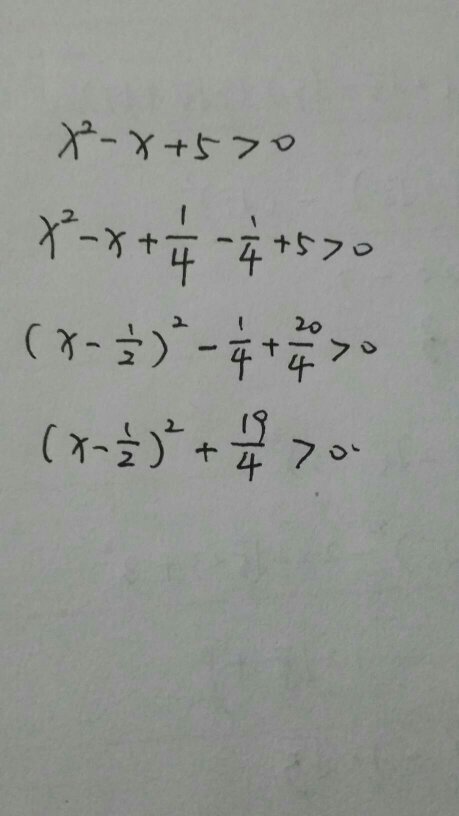 x² - x + 5 > 0
x² - x + 1/4 - 1/4 + 5 > 0
(x - 1/2)² - 1/4 + 20/4 > 0
(x - 1/2)² + 19/4 > 0